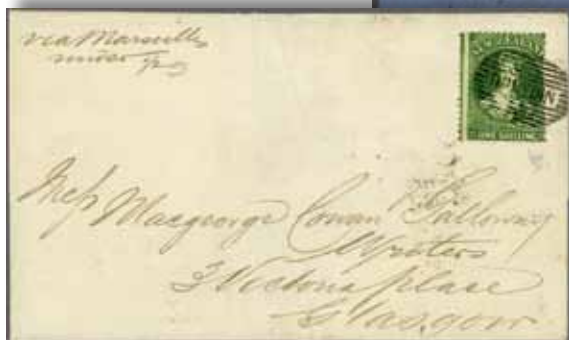 via Marseilles
under
NEW ZEALAND
ONE SHILLING
Mess Macgeorge Cowan Galloway
Writers
3 Victoria place
Glasgow